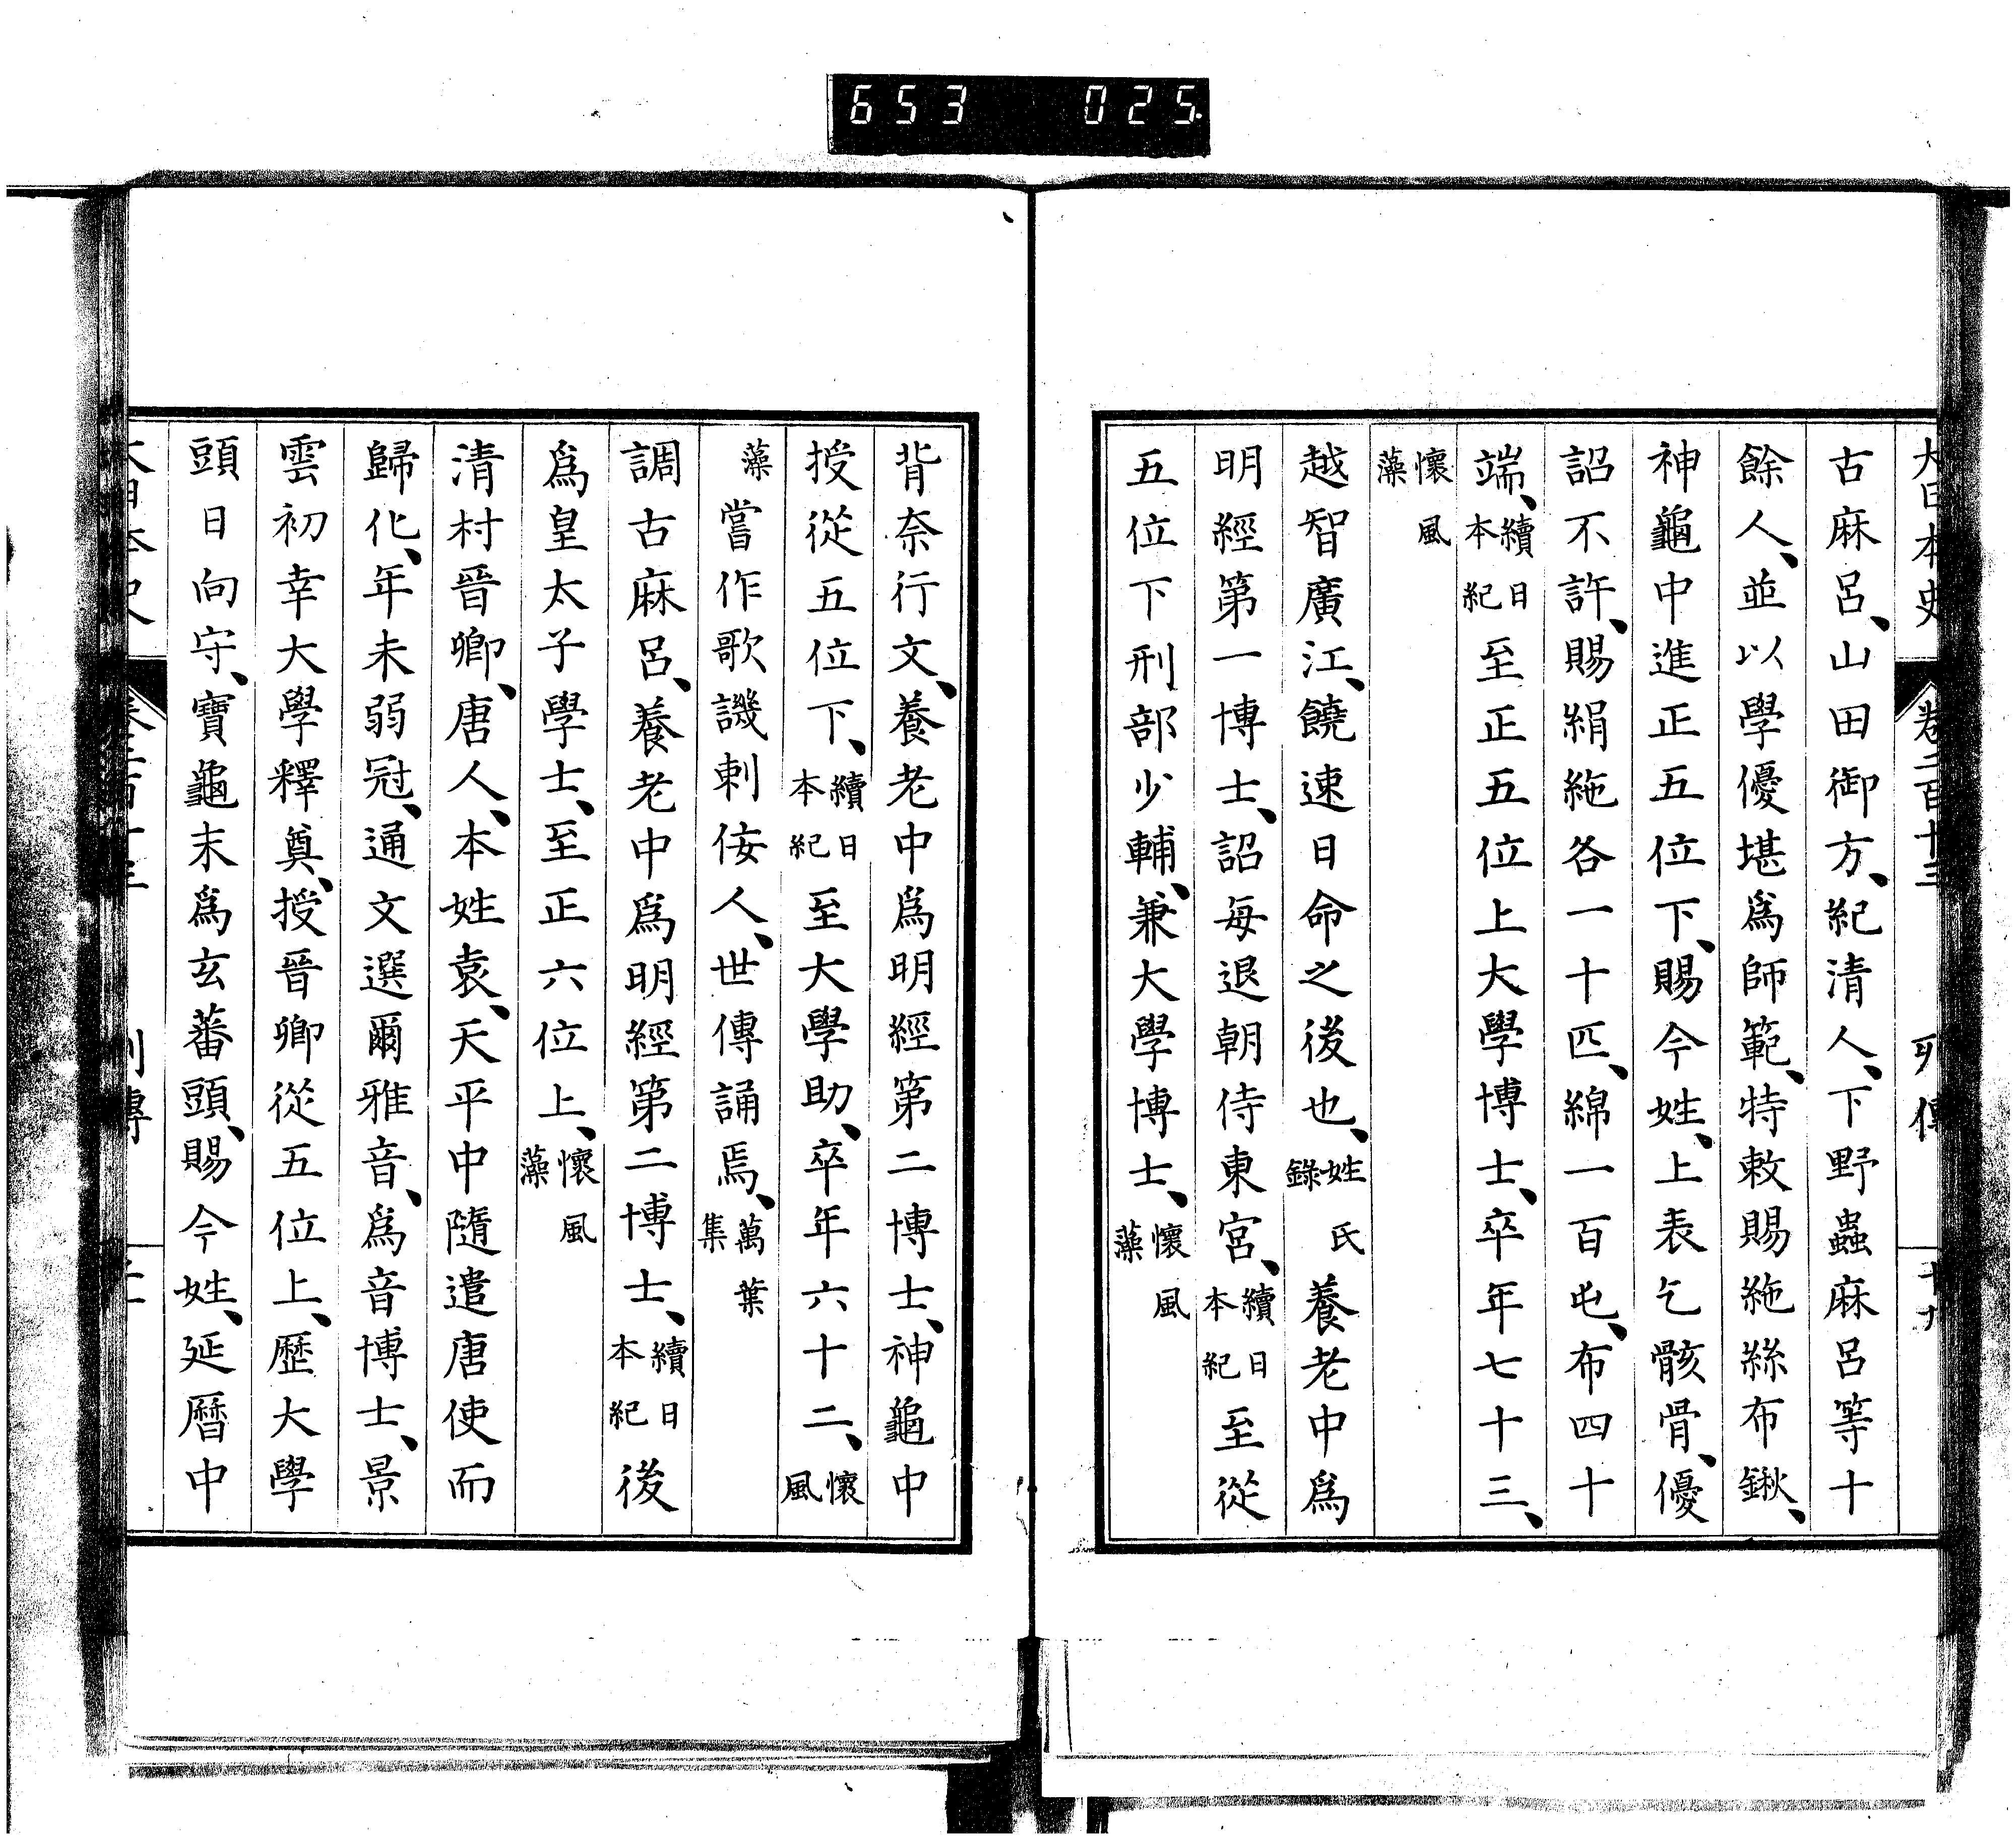 653 025
大日本史 卷二百十三 列傳 十九
古麻呂、山田御方、紀清人、下野蟲麻呂等十
餘人、並以學優堪爲師範、特敕賜絁絲布鍬、
神龜中進正五位下、賜今姓、上表乞骸骨、優
詔不許、賜絹絁各一十匹、綿一百屯、布四十
端、續日本紀至正五位上大學博士、卒年七十三、
懷風藻
越智廣江、饒速日命之後也、姓氏錄養老中爲
明經第一博士、詔每退朝侍東宮、續日本紀至從
五位下刑部少輔、兼大學博士、懷風藻
背奈行文、養老中爲明經第二博士、神龜中
授從五位下、續日本紀至大學助、卒年六十二、懷風
藻嘗作歌譏刺佞人、世傳誦焉、萬葉集
調古麻呂、養老中爲明經第二博士、續日本紀後
爲皇太子學士、至正六位上、懷風藻
清村晉卿、唐人、本姓袁、天平中隨遣唐使而
歸化、年未弱冠、通文選爾雅音、爲音博士、景
雲初幸大學釋奠、授晉卿從五位上、歷大學
頭日向守、寶龜末爲玄蕃頭、賜今姓、延曆中
大日本史 列傳